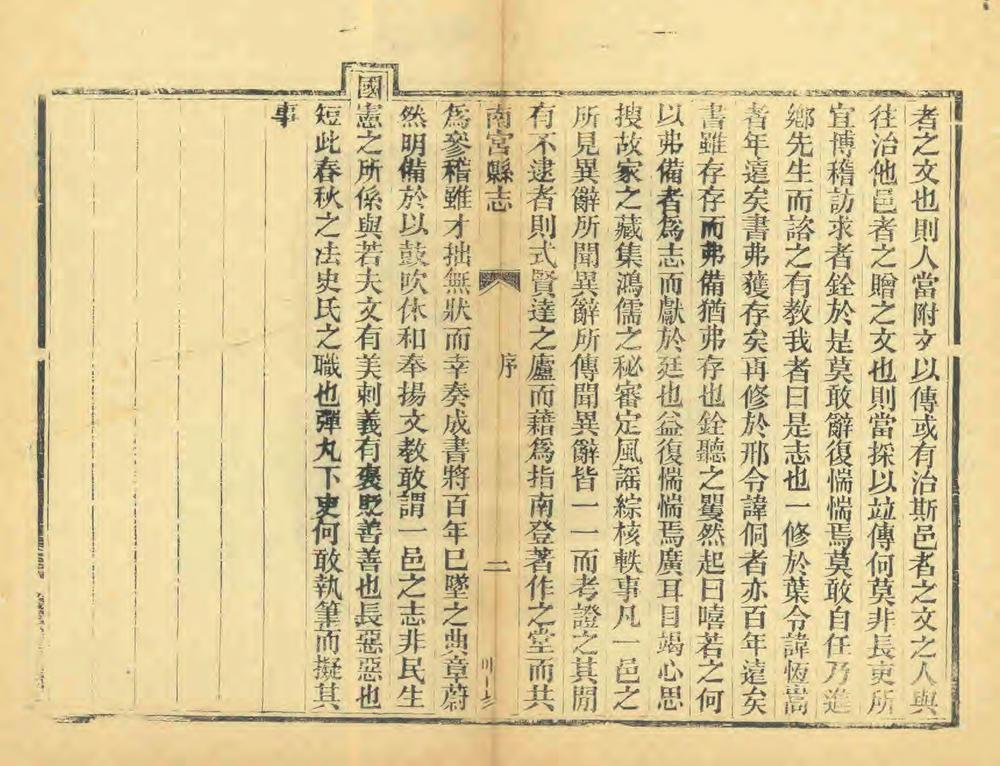 者之文也則人當附文以傳或有治斯邑者之文之人與
往治他邑者之贈之文也則當採以竝傳何莫非長吏所
宜博稽訪求者銓於是莫敢辭復惴惴焉莫敢自任乃進
鄉先生而諮之有教我者曰是志也一修於葉令諱恆嵩
者年遠矣書弗獲存矣再修於邢令諱侗者亦百年遠矣
書雖存存而弗備猶弗存也銓聽之矍然起曰嘻若之何
以弗備者爲志而獻於廷也益復惴惴焉廣耳目竭心思
搜故家之藏集鴻儒之秘審定風謠綜核軼事凡一邑之
所見異辭所聞異辭所傳聞異辭皆一一而考證之其閒
有不逮者則式賢達之廬而藉爲指南登著作之堂而共
南宮縣志
序
二
爲參稽雖才拙無狀而幸奏成書將百年已墜之典章蔚
然明備於以鼓吹休和奉揚文教敢謂一邑之志非民生
國憲之所係與若夫文有美刺義有褒貶善善也長惡惡也
短此春秋之法史氏之職也彈丸下吏何敢執筆而擬其
事